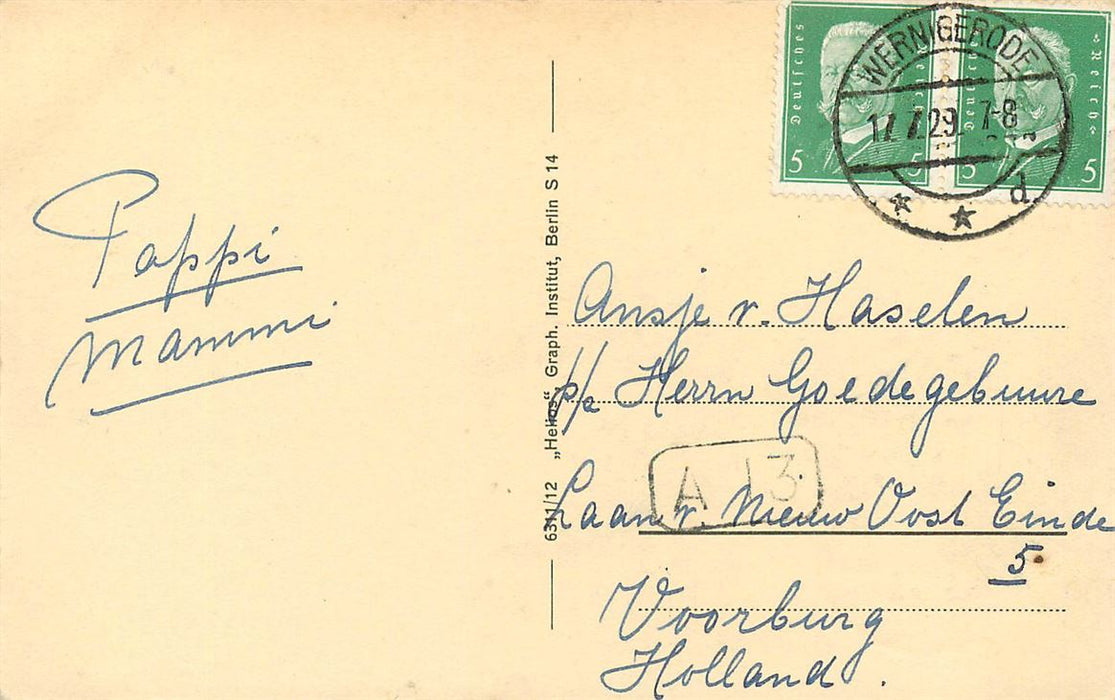 Pappi
Mammi
6311/12 „Helios“, Graph. Institut, Berlin S 14
Deutsches Reich
5 5
Deutsches Reich
5 5
WERNIGERODE
17.7.29. 7-8
d
Ansje v. Haselen
p/a Herrn Goedegebuure
A 13
Laan v. Nieuw Oost Einde
5
Voorburg
Holland.